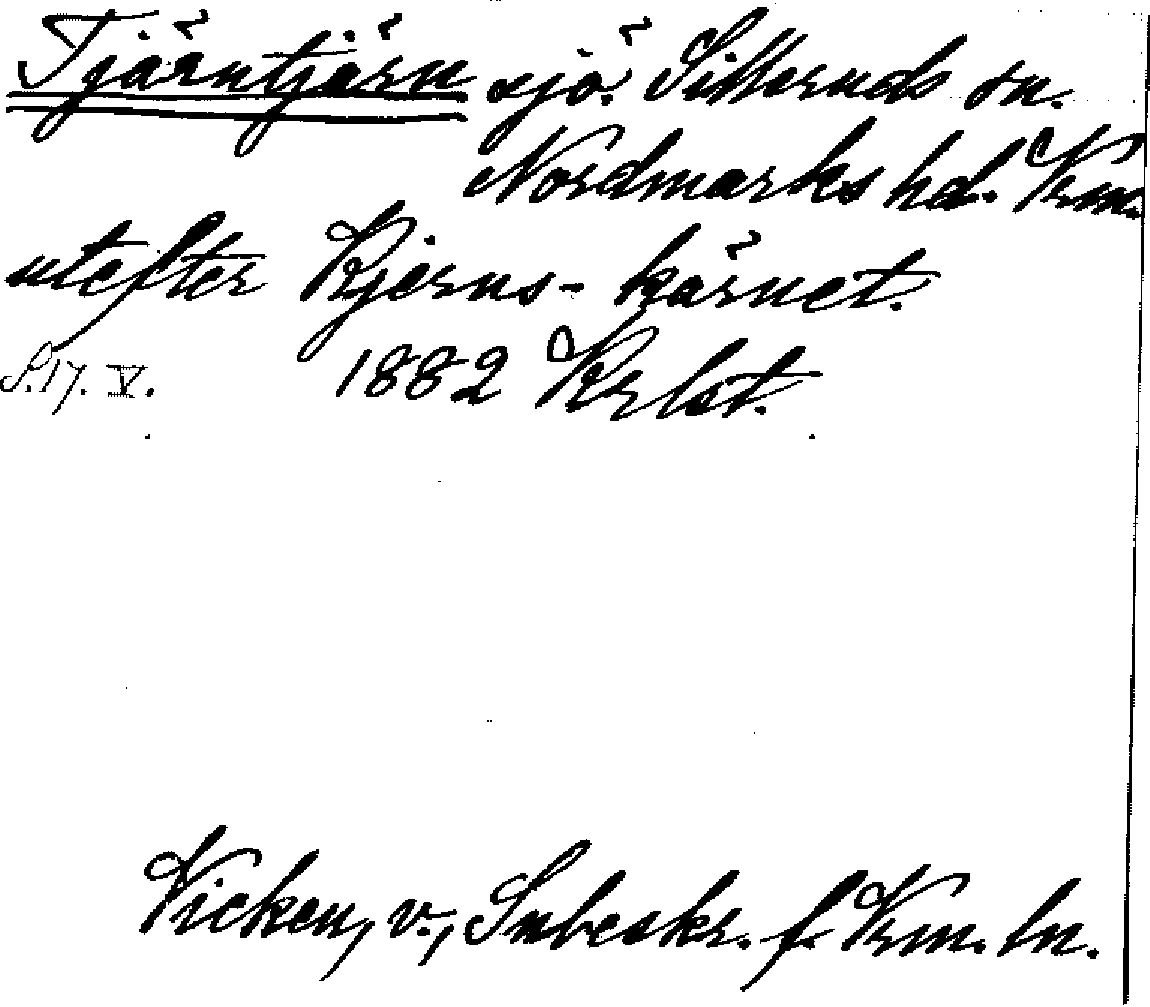 Tjärntjärn sjö. Silleruds sn.
Nordmarks hd. Vrm.
utefter Kjerns-kärnet.
S. 17. V. 1882 Krlst.
Vicken, v., Snbeskr. f. Vrm. ln.